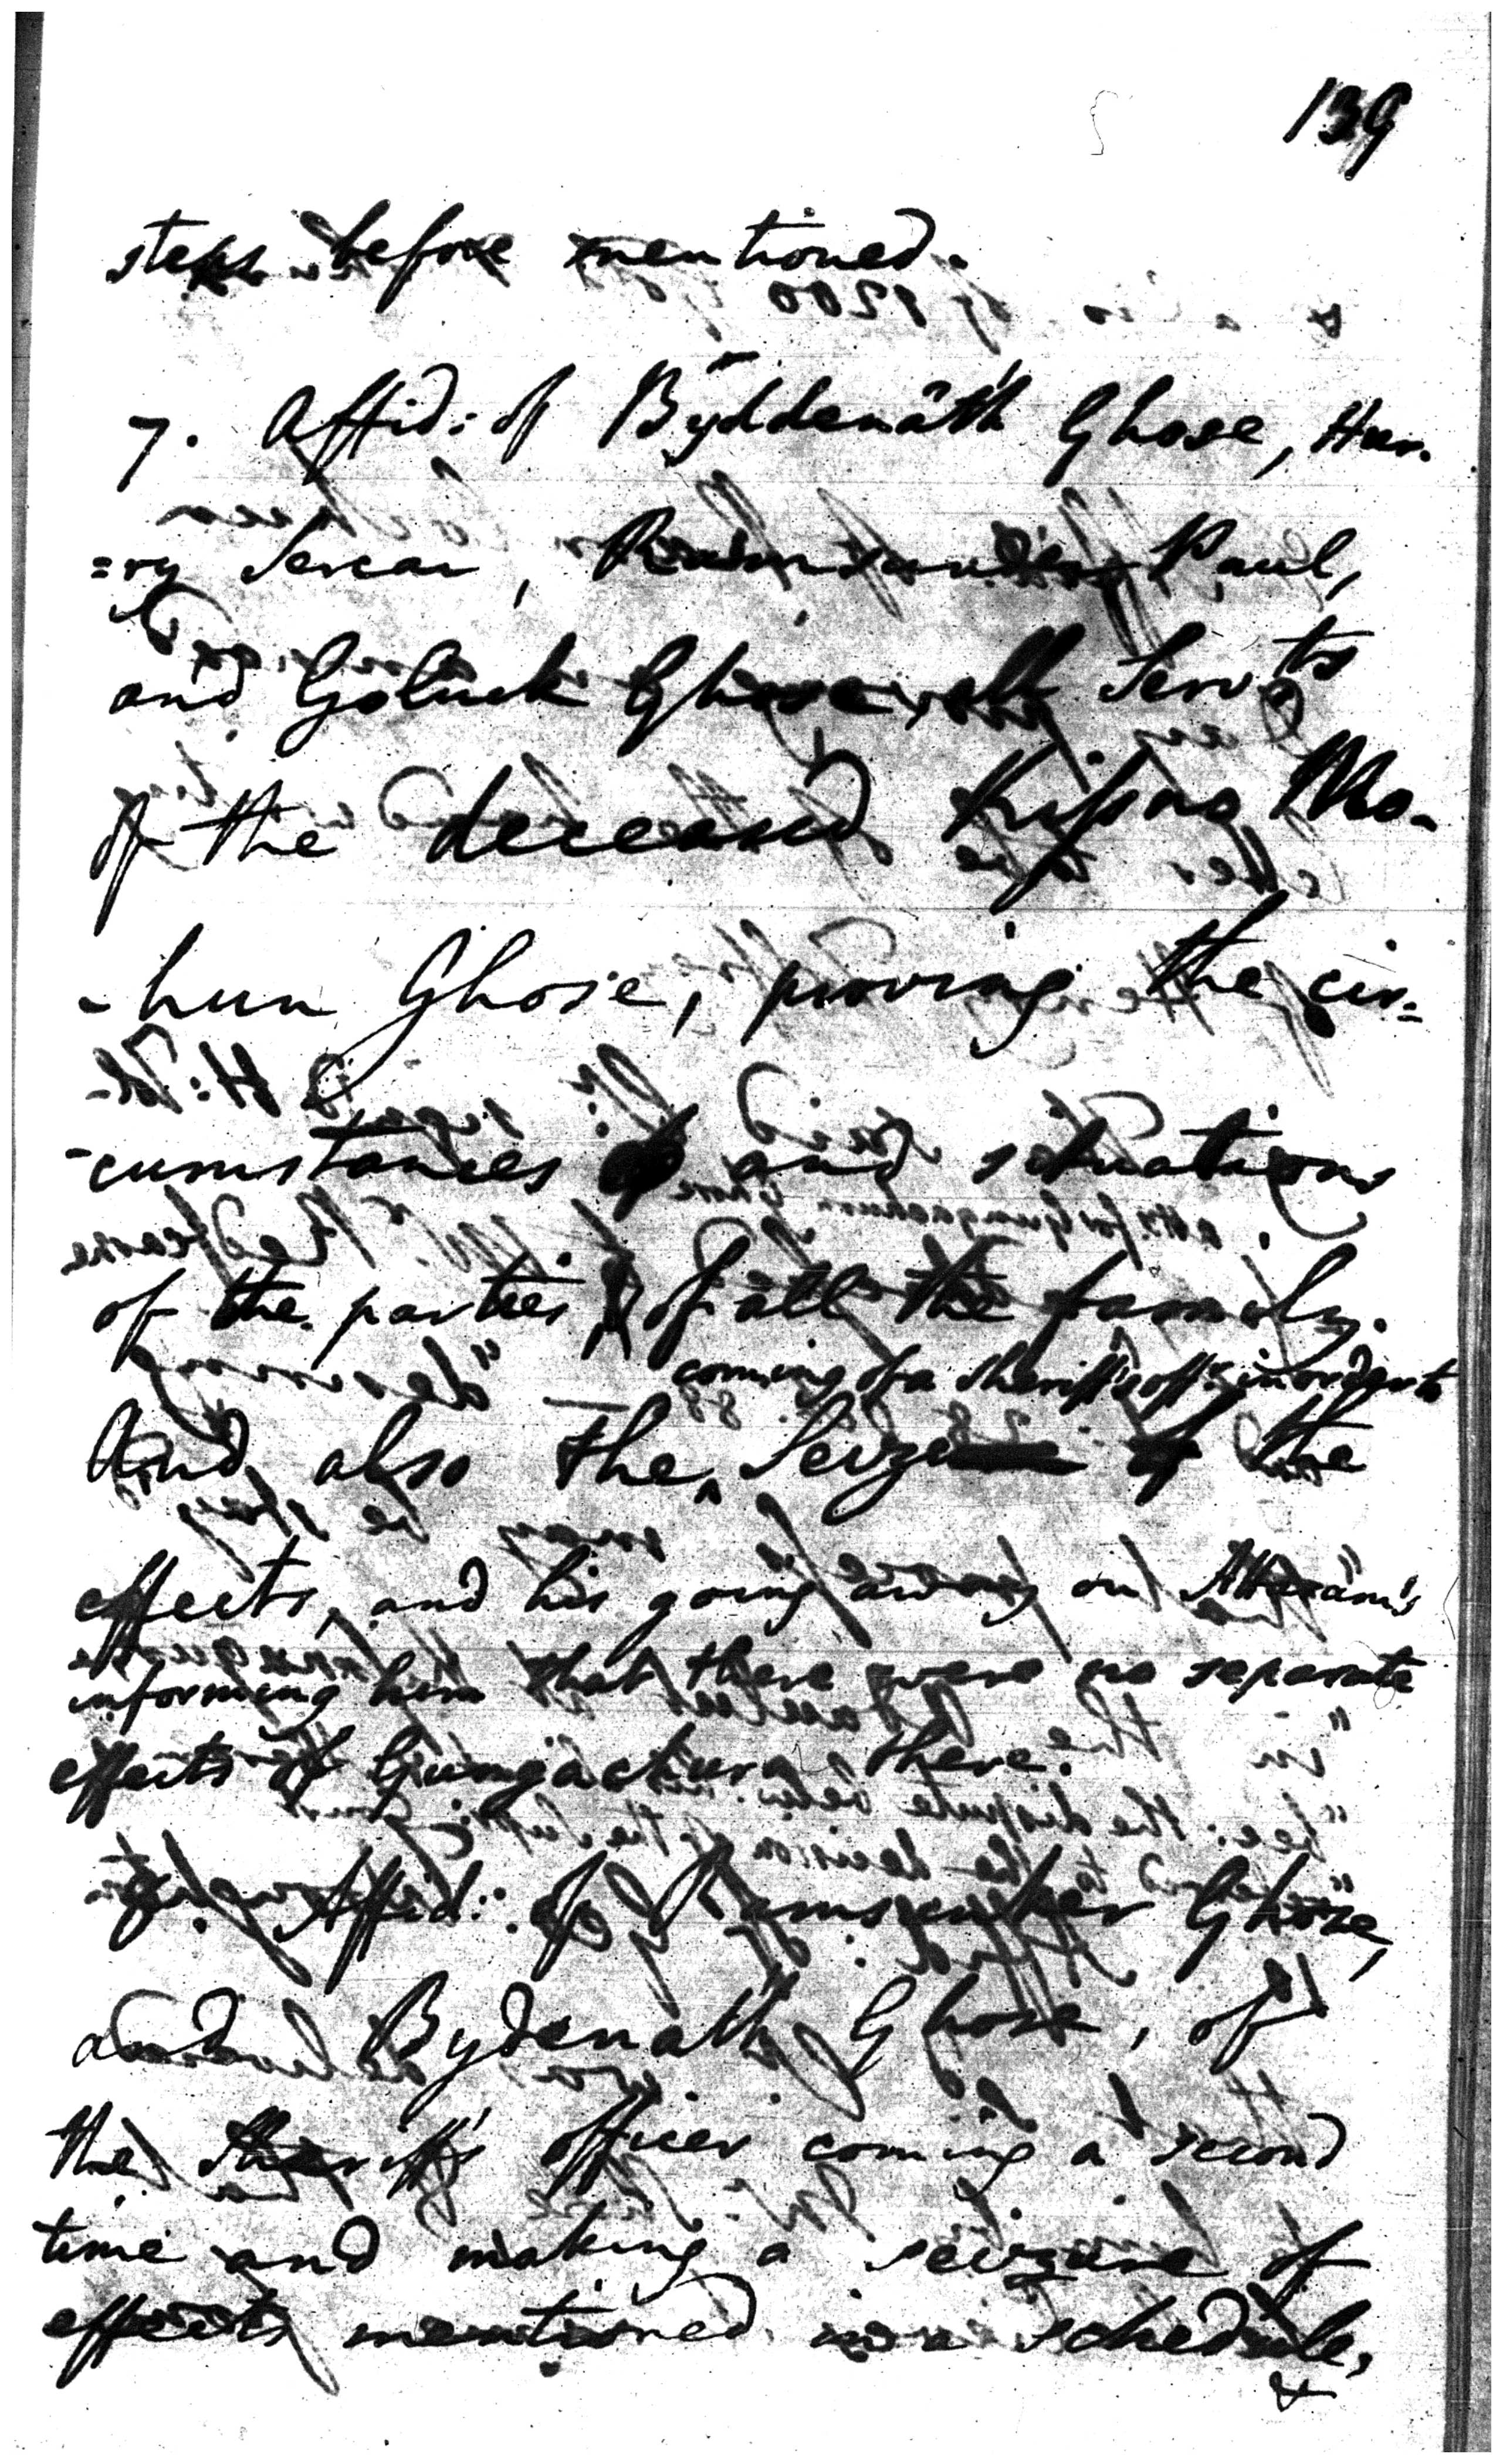 139
steps before mentioned.
7. Affid: of Byddenâth Ghose, Hur-
=ry Sercar, Ramsunder Paul,
and Goluck Ghose, all Servts
of the deceased Kissno Mo-
-hun Ghose, proving the cir=
-cumstances and situations
of the parties, of all the family.
coming of a sheriff's offr: in order to
And also the ^ Seize the
effects, and his going away on
informing him that there were no separate
effects of Gungachurn there.
8. Affid: of Ramsunker Ghose,
and Bydenath Ghose, of
the Sheriff's officer coming a second
time and making a seizure of
effects mentioned in a schedule,
&